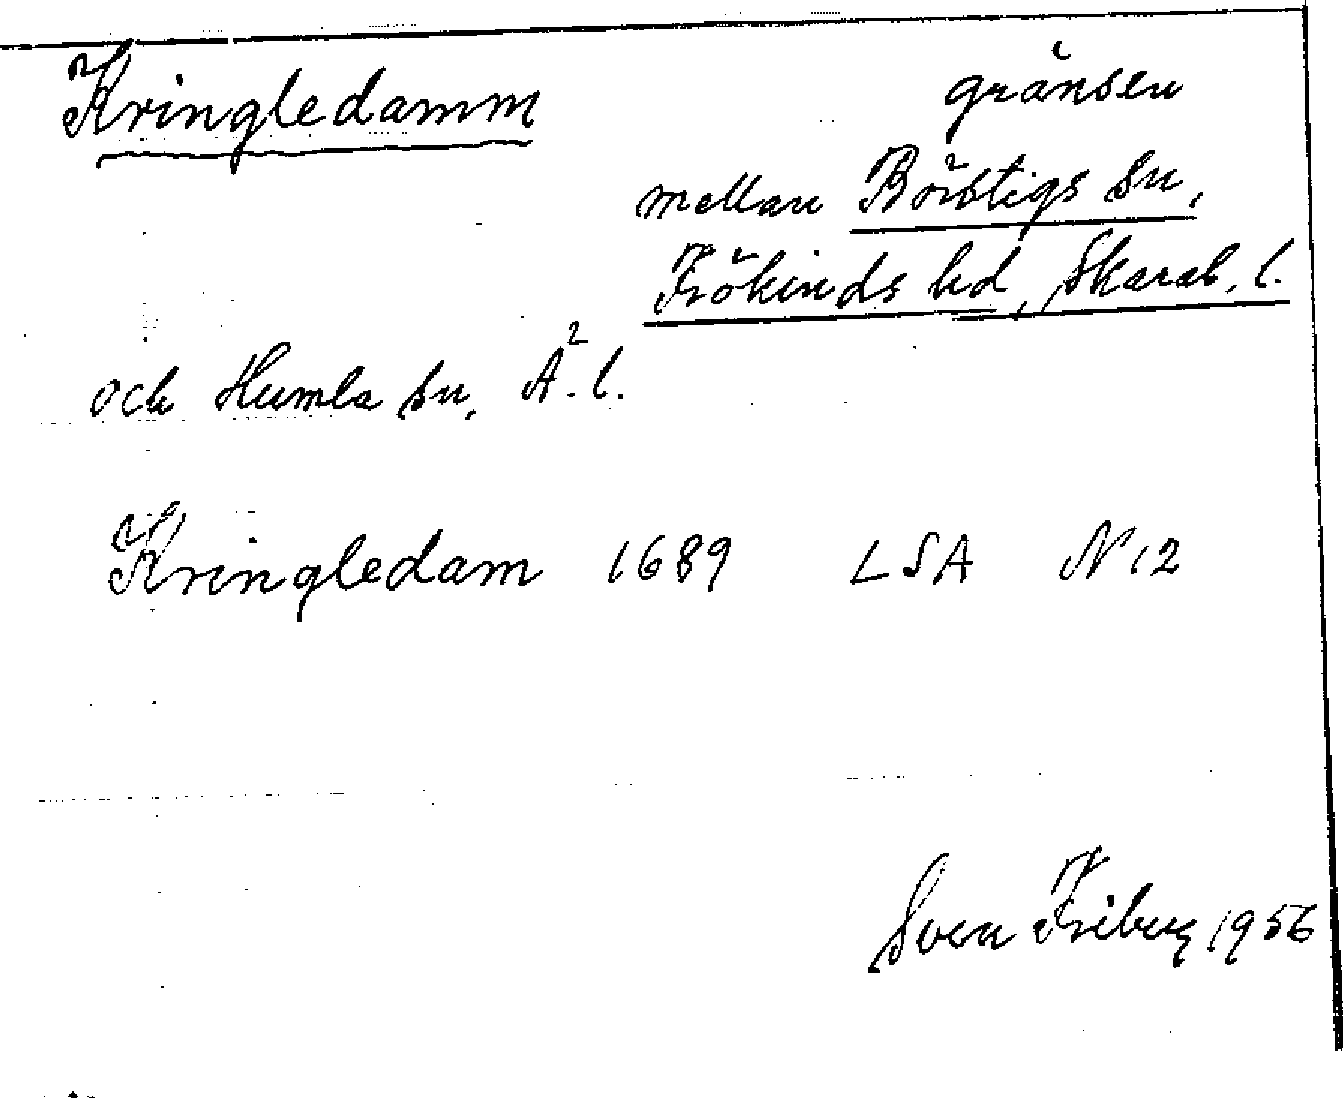 Kringledamm
gränsen
mellan Börstigs sn,
Frökinds hd, Skarab. l.
och Humla sn, Ä. l.
Kringledam 1689 LSA N 12
Sven Friberg 1956